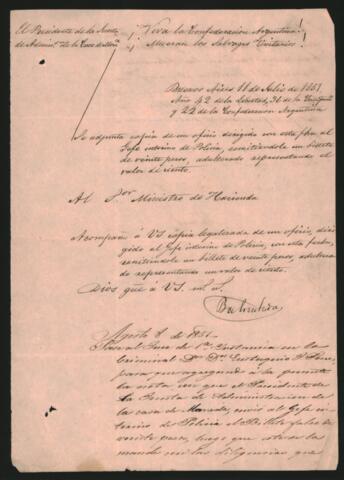 El Presidente de la Junta
de Admin.n de la Casa de Mon.a
¡Viva la Confederacion Argentina!
¡Mueran los Salvages Unitarios!
Buenos Aires 11 de Julio de 1851
Año 42 de la Libertad, 36 de la
y 22 de la Confederacion Argentina
Se adjunta copia de un oficio dirigido con esta fha. al
Jefe interino de Policia, remitiendole un billete
de veinte pesos, adulterado representando el
valor de ciento.
Al S.or Ministro de Hacienda
Acompaño á VS copia legalizada de un oficio, diri
gido al Gefe interino de Policia, con esta fecha,
remitiendole un billete de veinte pesos, adultera
do representando un valor de ciento.
Dios gue á VS. m. a.
Agosto 8 de 1851
Pase al Juez de 1.a Instancia en lo
Criminal D.r D.n Eustoquio
para que agregando á la
la nota en que el Presidente de
la Junta de Administracion de
la casa de Moneda, envió al Gefe in
terino de Policia el billete falso de
veinte pesos, luego que este se la
mande con las diligencias que